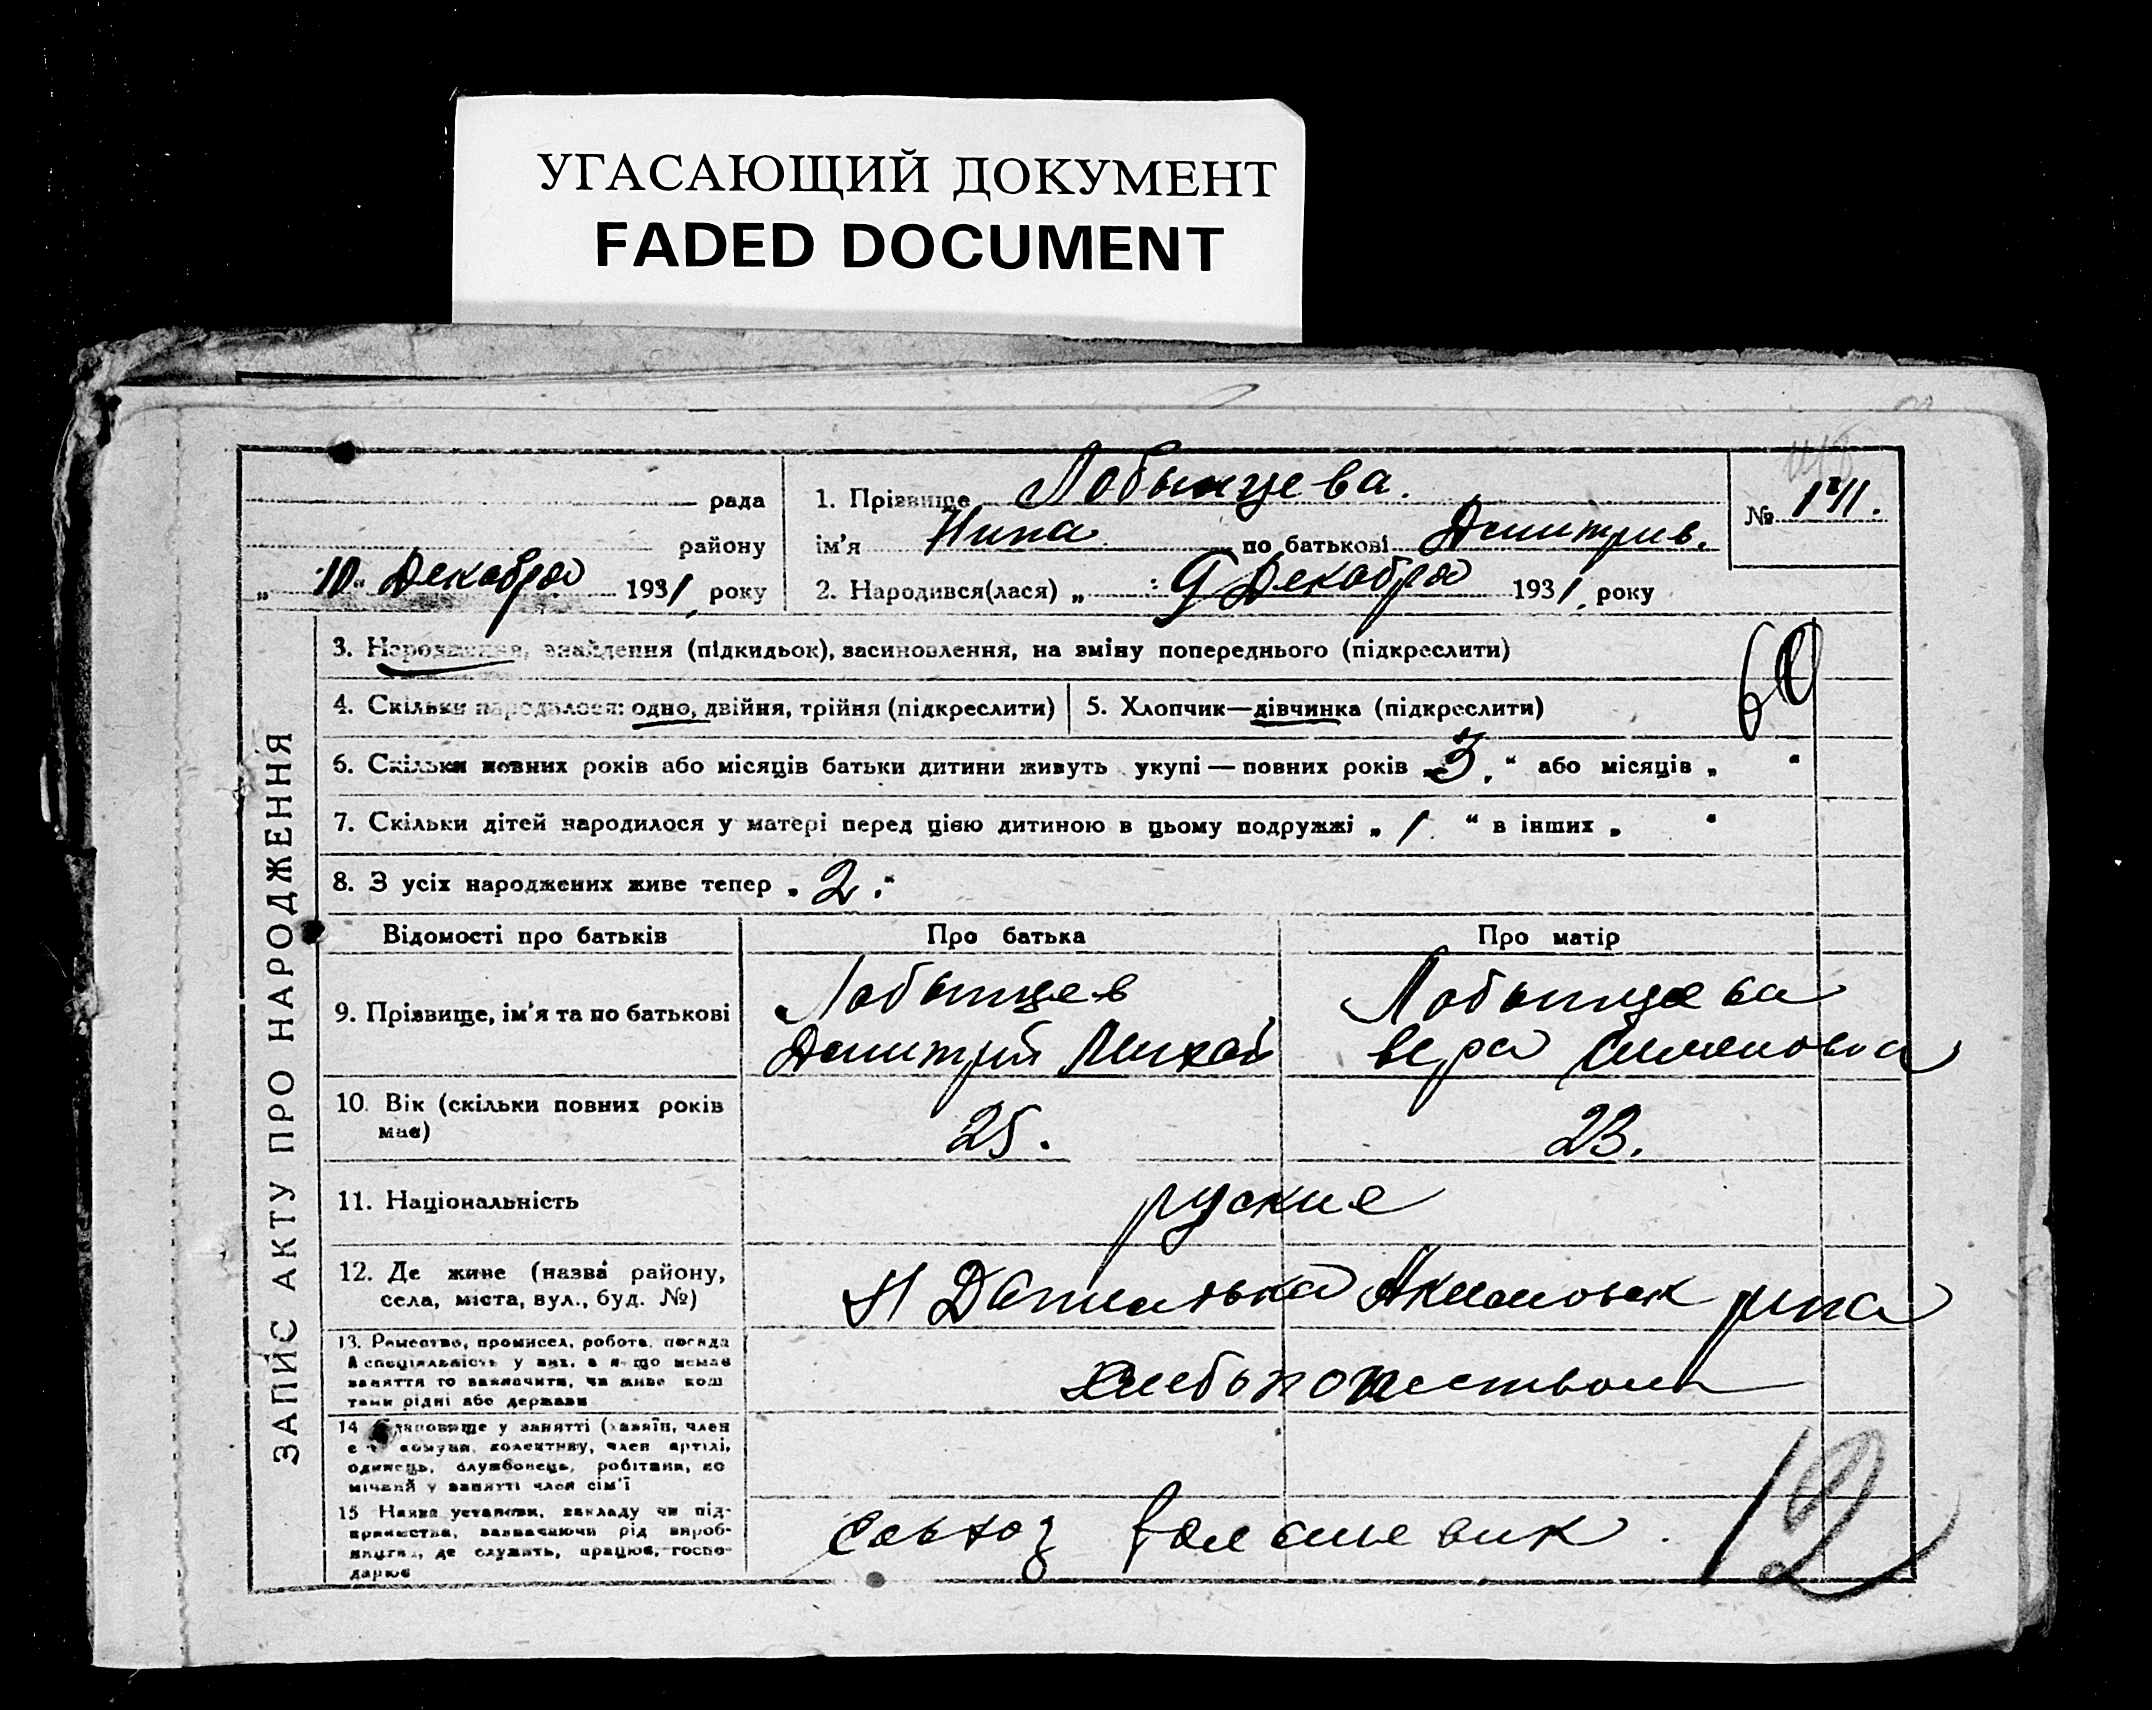 УГАСАЮЩИЙ ДОКУМЕНТ
FADED DOCUMENT
рада
району
„ 10 “ Декабря 1931 року
1. Прізвище Лобынцева.
ім'я Нина по батькові Дмитрив.
2. Народився(лася) „ 9 Декабря 1931 року
№ 141.
ЗАПИС АКТУ ПРО НАРОДЖЕННЯ
3. Народження, знайдення (підкидьок), засиновлення, на зміну попереднього (підкреслити)
60
4. Скільки народилося: одно, двійня, трійня (підкреслити)
5. Хлопчик—дівчинка (підкреслити)
6. Скільки повних років або місяців батьки дитини живуть укупі — повних років „ 3. “ або місяців „ “
7. Скільки дітей народилося у матері перед цією дитиною в цьому подружжі „ 1 “ в інших „ “
8. З усіх народжених живе тепер „ 2. “
Відомості про батьків
Про батька
Про матір
9. Прізвище, ім'я та по батькові
Лобынцев
Дмитрий Михай
Лобынцева
вера Сименовна
10. Вік (скільки повних років
має)
25.
23.
11. Національність
руские
12. Де живе (назва району,
села, міста, вул., буд. №)
Н Акимовск рна
13. Ремество, промисел, робота, посада
й спеціяльність у них, а якщо немає
заняття то зазначити, чи живе кош
тами рідні або держави
14 Становище у занятті (хазяїн, член
комуни, колективу, член артілі,
одинець, службовець, робітник, по
мічний у занятті член сім'ї
15 Назва установи, закладу чи під-
приємства, зазначаючи рід вироб-
ництва, де служить, працює, госпо-
дарює
совхоз большевик.
12